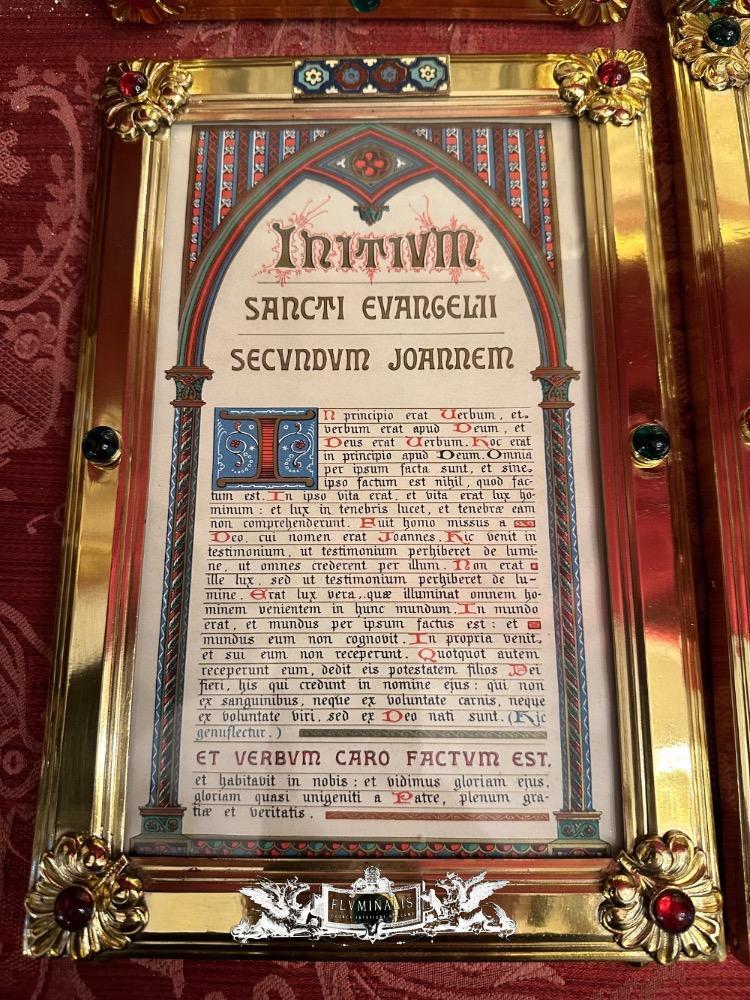 INITIVM
SANCTI EVANGELII
SECVNDVM JOANNEM
In principio erat Verbum, et
verbum erat apud Deum, et
Deus erat Verbum. Hoc erat
in principio apud Deum. Omnia
per ipsum facta sunt, et sine
ipso factum est nihil, quod fac-
tum est. In ipso vita erat, et vita erat lux ho-
minum: et lux in tenebris lucet, et tenebræ eam
non comprehenderunt. Fuit homo missus a
Deo, cui nomen erat Joannes. Hic venit in
testimonium, ut testimonium perhiberet de lumi-
ne, ut omnes crederent per illum. Non erat
ille lux, sed ut testimonium perhiberet de lu-
mine. Erat lux vera, quæ illuminat omnem ho-
minem venientem in hunc mundum. In mundo
erat, et mundus per ipsum factus est: et
mundus eum non cognovit. In propria venit,
et sui eum non receperunt. Quotquot autem
receperunt eum, dedit eis potestatem filios Dei
fieri, his qui credunt in nomine ejus: qui non
ex sanguinibus, neque ex voluntate carnis, neque
ex voluntate viri, sed ex Deo nati sunt. (Hic
genuflectur.)
ET VERBVM CARO FACTVM EST,
et habitavit in nobis: et vidimus gloriam ejus,
gloriam quasi unigeniti a Patre, plenum gra-
tiæ et veritatis.
FLVMINALIS